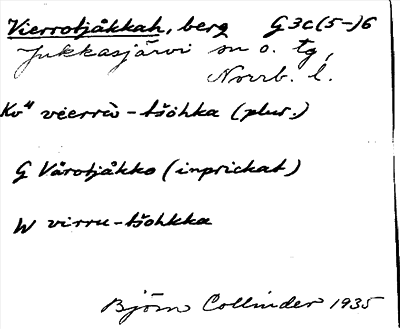 Vierrotjåkkah, berg G3c(5-)6
Jukkasjärvi sn o. tg,
Norrb. l.
Kv" vėerrὼ-tšohka (plur.)
G Vårotjåkko (inprickat)
W virru-tšohkka
Björn Collinder 1935